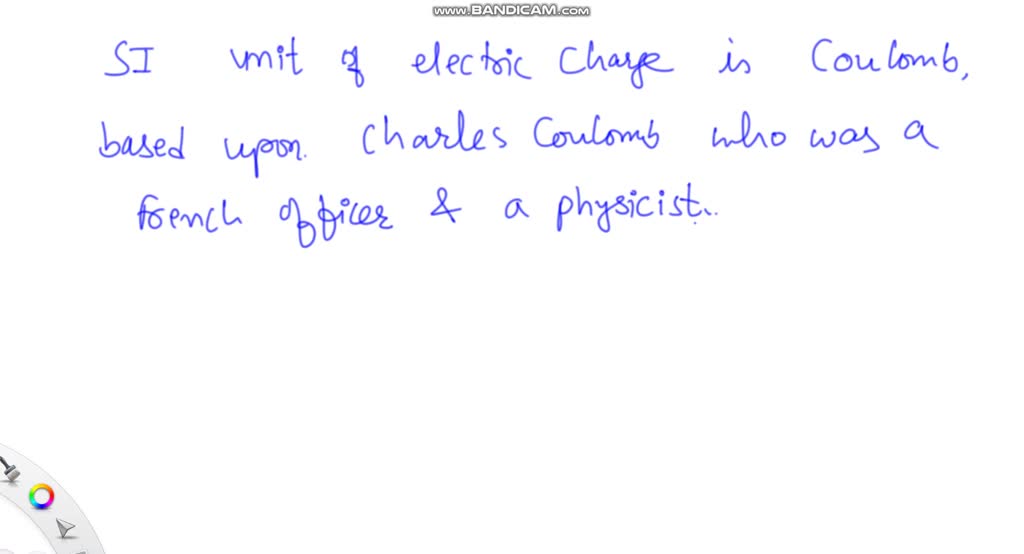 www.BANDICAM.com
SI unit of electric charge is Coulomb,
based upon. Charles Coulomb who was a
french officer & a physicist..